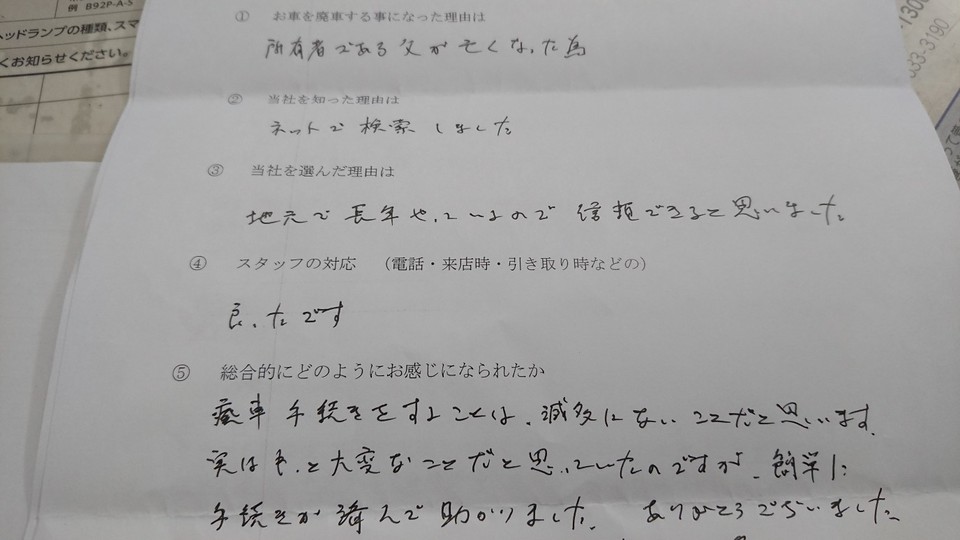 例 B92P-A-S
ヘッドランプの種類、スマ
くお知らせください。
① お車を廃車する事になった理由は
所有者である父が亡くなった為
② 当社を知った理由は
ネットで検索しました
③ 当社を選んだ理由は
地元で長年やっているので信頼できると思いました
④ スタッフの対応 (電話・来店時・引き取り時などの)
良ったです
⑤ 総合的にどのようにお感じになられたか
廃車手続きをすることは、滅多にないことだと思います。
実はもっと大変なことだと思っていたのですが、簡単に
手続きが済んで助かりました。 ありがとうございました。
-130
333-3190